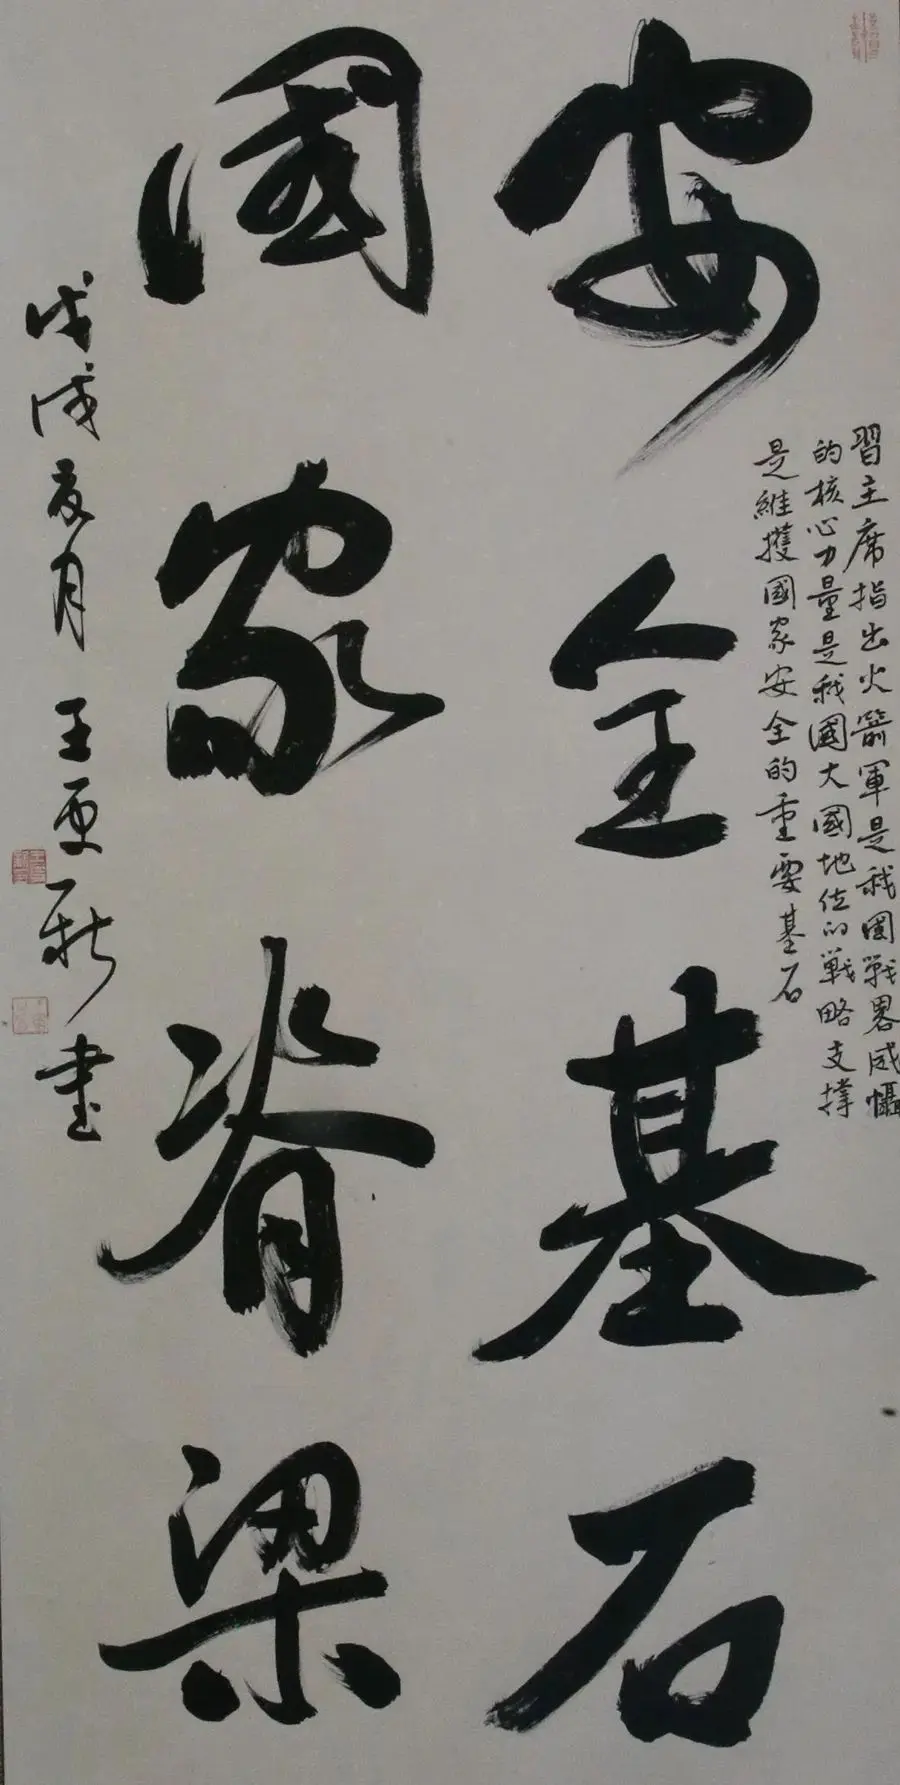 安全基石
國家脊梁
習主席指出火箭軍是我國戰畧威懾
的核心力量是我國大國地位的戰略支撑
是維擭國家安全的重要基石
戊戌夏月王更新書